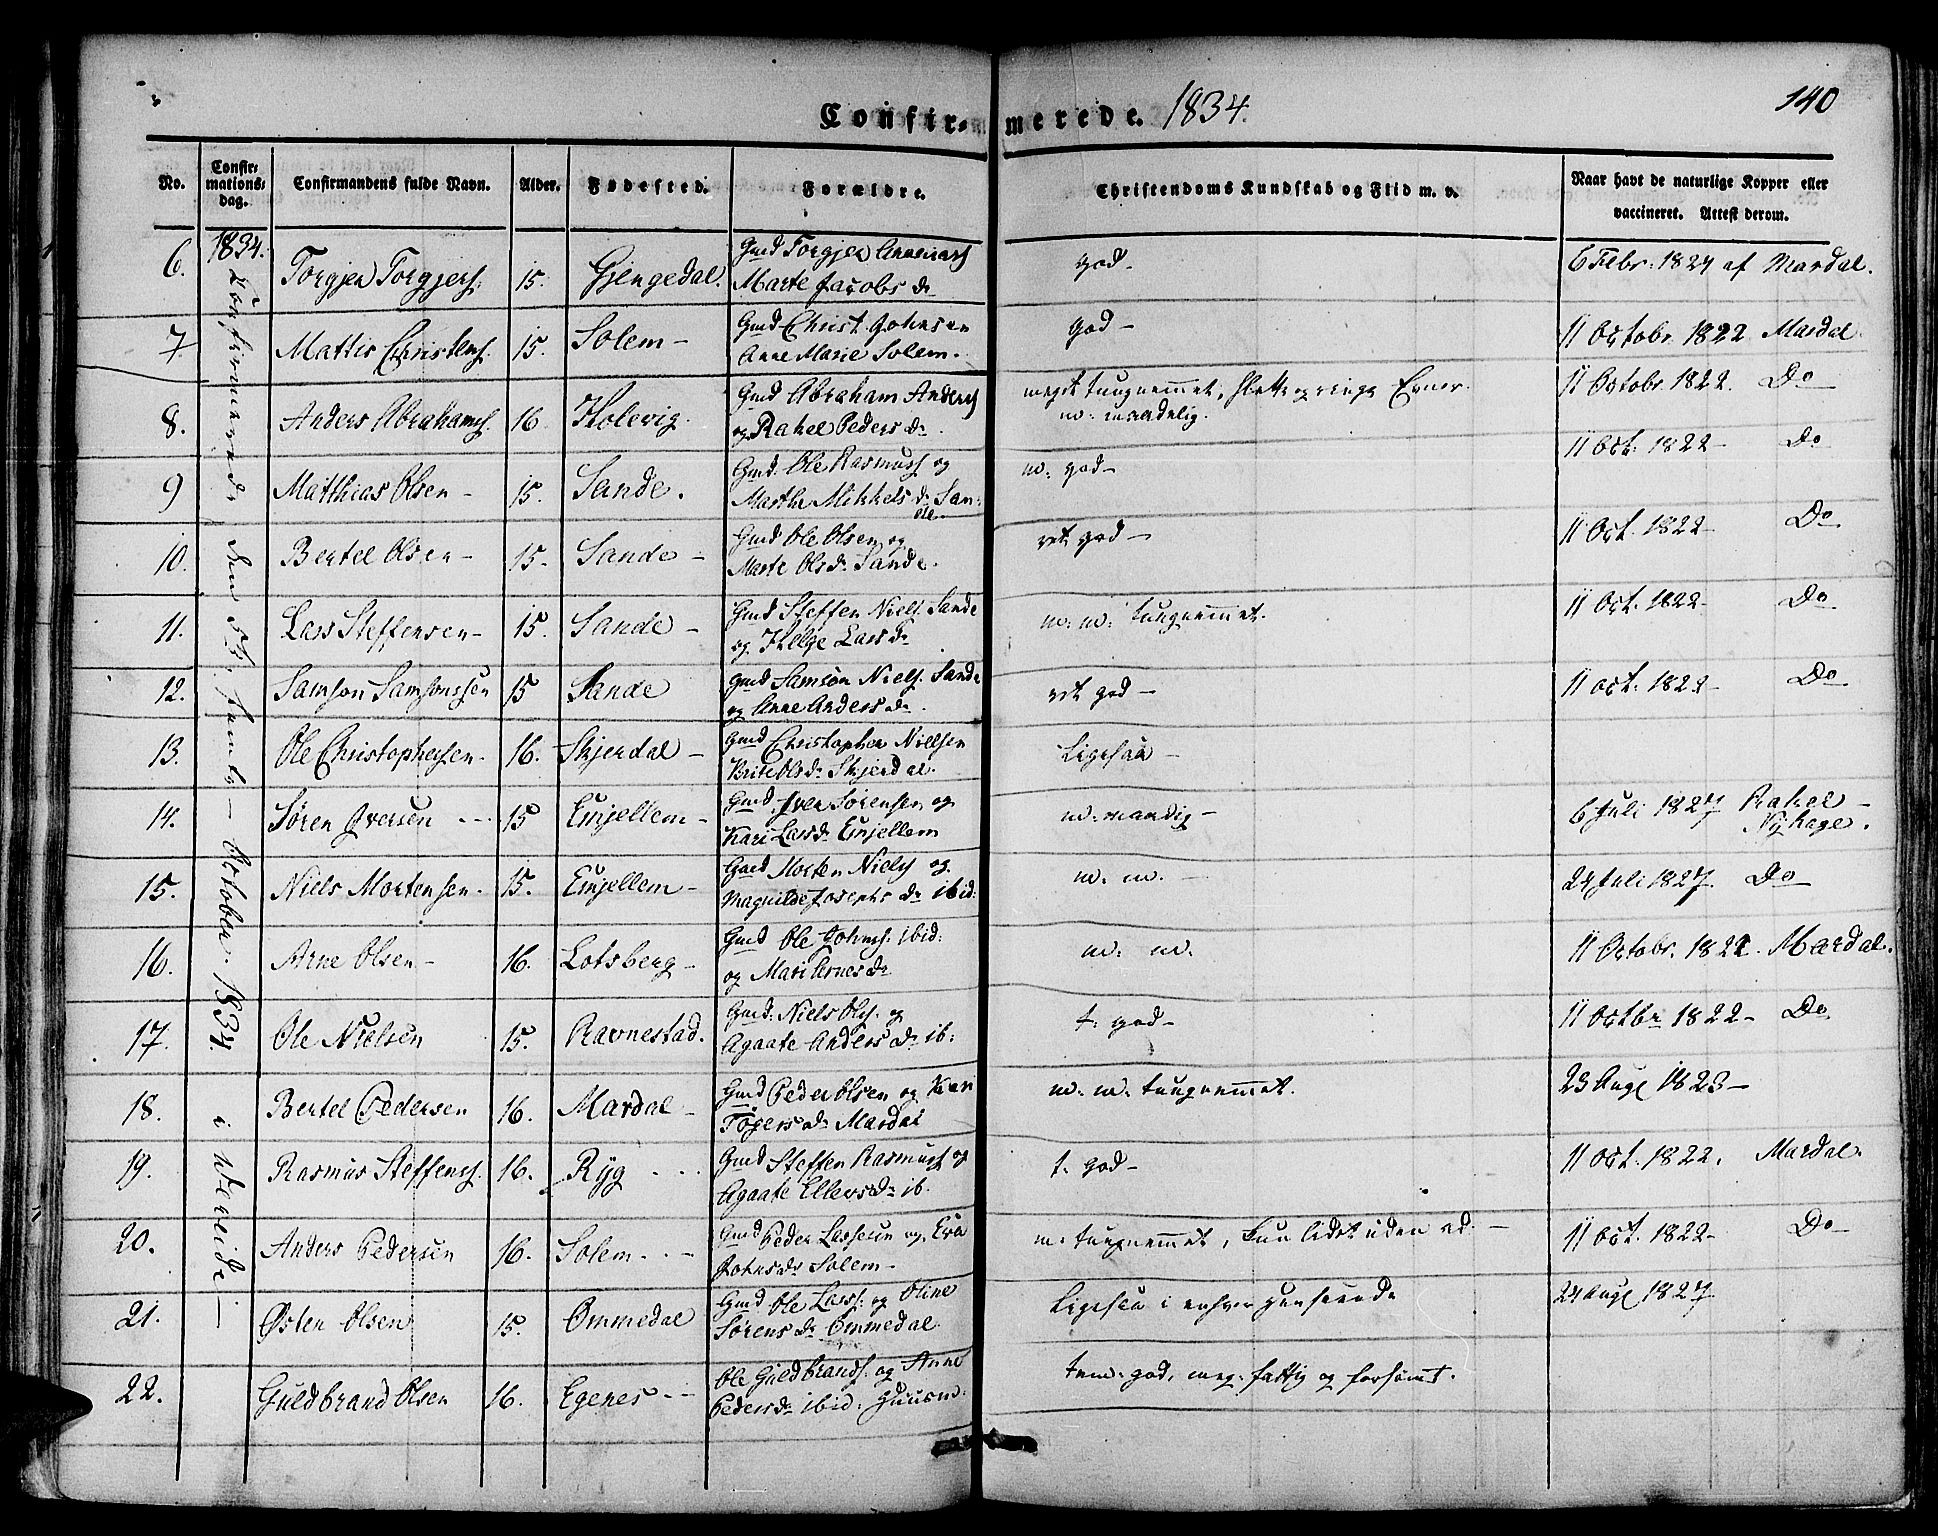 140
Confirmerede. 1834.
No.
Confirmationsdag.
Confirmandens fulde Navn.
Alder.
Fødested.
Forældre.
Christendoms Kundskab og Flid m. v.
Naar havt de naturlige Kopper eller vaccineret. Attest derom.
1834.
Confirmerede den 5te Octobr. 1834 i Wereide —
6. Torgjer Torgjers. 15. Gjengedal. Gmd Torgjer
Marte Jacobs dr
god - 6 Febr. 1824 af Mardal.
7 Mattis Christens. 15. Solem - Gmd Christ. Johnsen
Anne Marie Solem.
god - 11 Octobr 1822 Mardal.
8. Anders Abrahams. 16 Holevig. Gmd Abraham Anders
og Rahel Peders dr
meget tungnemmet, slette og ringe Evner. 11 Octobr. 1822. Do
m. maadelig.
9 Matthias Olsen - 15. Sande. Gmd. Ole Rasmuss og
Marthe Mikkels dr Sande
m. god - 11 Oct. 1822 - Do
10. Bertel Olsen - 15. Sande - Gmd Ole Olsen og
Marte Ols dr Sande.
ret god - 11 Oct. 1822 - Do
11. Lars Steffensen - 15. Sande - Gmd Steffen Niels. Sande
og Helge Lars dr
m. m. tungnemmet. 11 Oct. 1822 - Do
12. Samson Samsonssen 15 Sande Gmd Samson Niels. Sande
og Anne Anders dr
ret god - 11 Oct. 1822 - Do
13. Ole Christophersen. 16. Skjerdal - Gmd Christopher Nielsen
Brite Ols dr Skjerdal.
Ligesaa - 
14. Søren Iversen 15 Emjellem - Gmd. Iver Sørensen og
Kari Lars dr Emjellem
m. maadig - 6 Juli 1827 Rahel -
Nyhage.
15. Niels Mortensen. 15. Emjellem - Gmd Morten Niels og
Magnilde Josephs dr ibid:
m. m. - 24 Juli 1827. Do
16. Arne Olsen - 16. Lotsberg - Gmd Ole Johns. ibid:
og Mari Arnes dr
m. m. 11 Octobr. 1822 Mardal.
17. Ole Nielsen 15. Ravnestad. Gmd. Niels Ols. og
Agaate Anders dr ib:
t. god - 11 Octbr 1822 - Do
18. Bertel Pedersen 16. Mardal - Gmd Peder Olsen og Kari
Tøgers dr Mardal
m. m. tungnemmet. 23 Aug 1823 -
19. Rasmus Steffens. 16. Ryg Gmd Steffen Rasmuss og
Agaate Ellers dr ib.
t. god - 11 Oct. 1822. Mardal.
20. Anders Pedersen 16. Solem Gmd Peder Lassesen og Eva
Johns dr Solem -
m. tungnemmet, kun lidet uden ad. - 11 Oct. 1822 - Do
21. Østen Olsen 15. Ommedal Gmd Ole Larss. og Oline
Sørens dr Ommedal.
Ligesaa i enhver Henseende 24 Aug 1827
22. Guldbrand Olsen 16. Egenes Ole Guldbrands. og Anne
Peders dr ibid: Huusm.
tem. god, meg. fattig og forsømt.